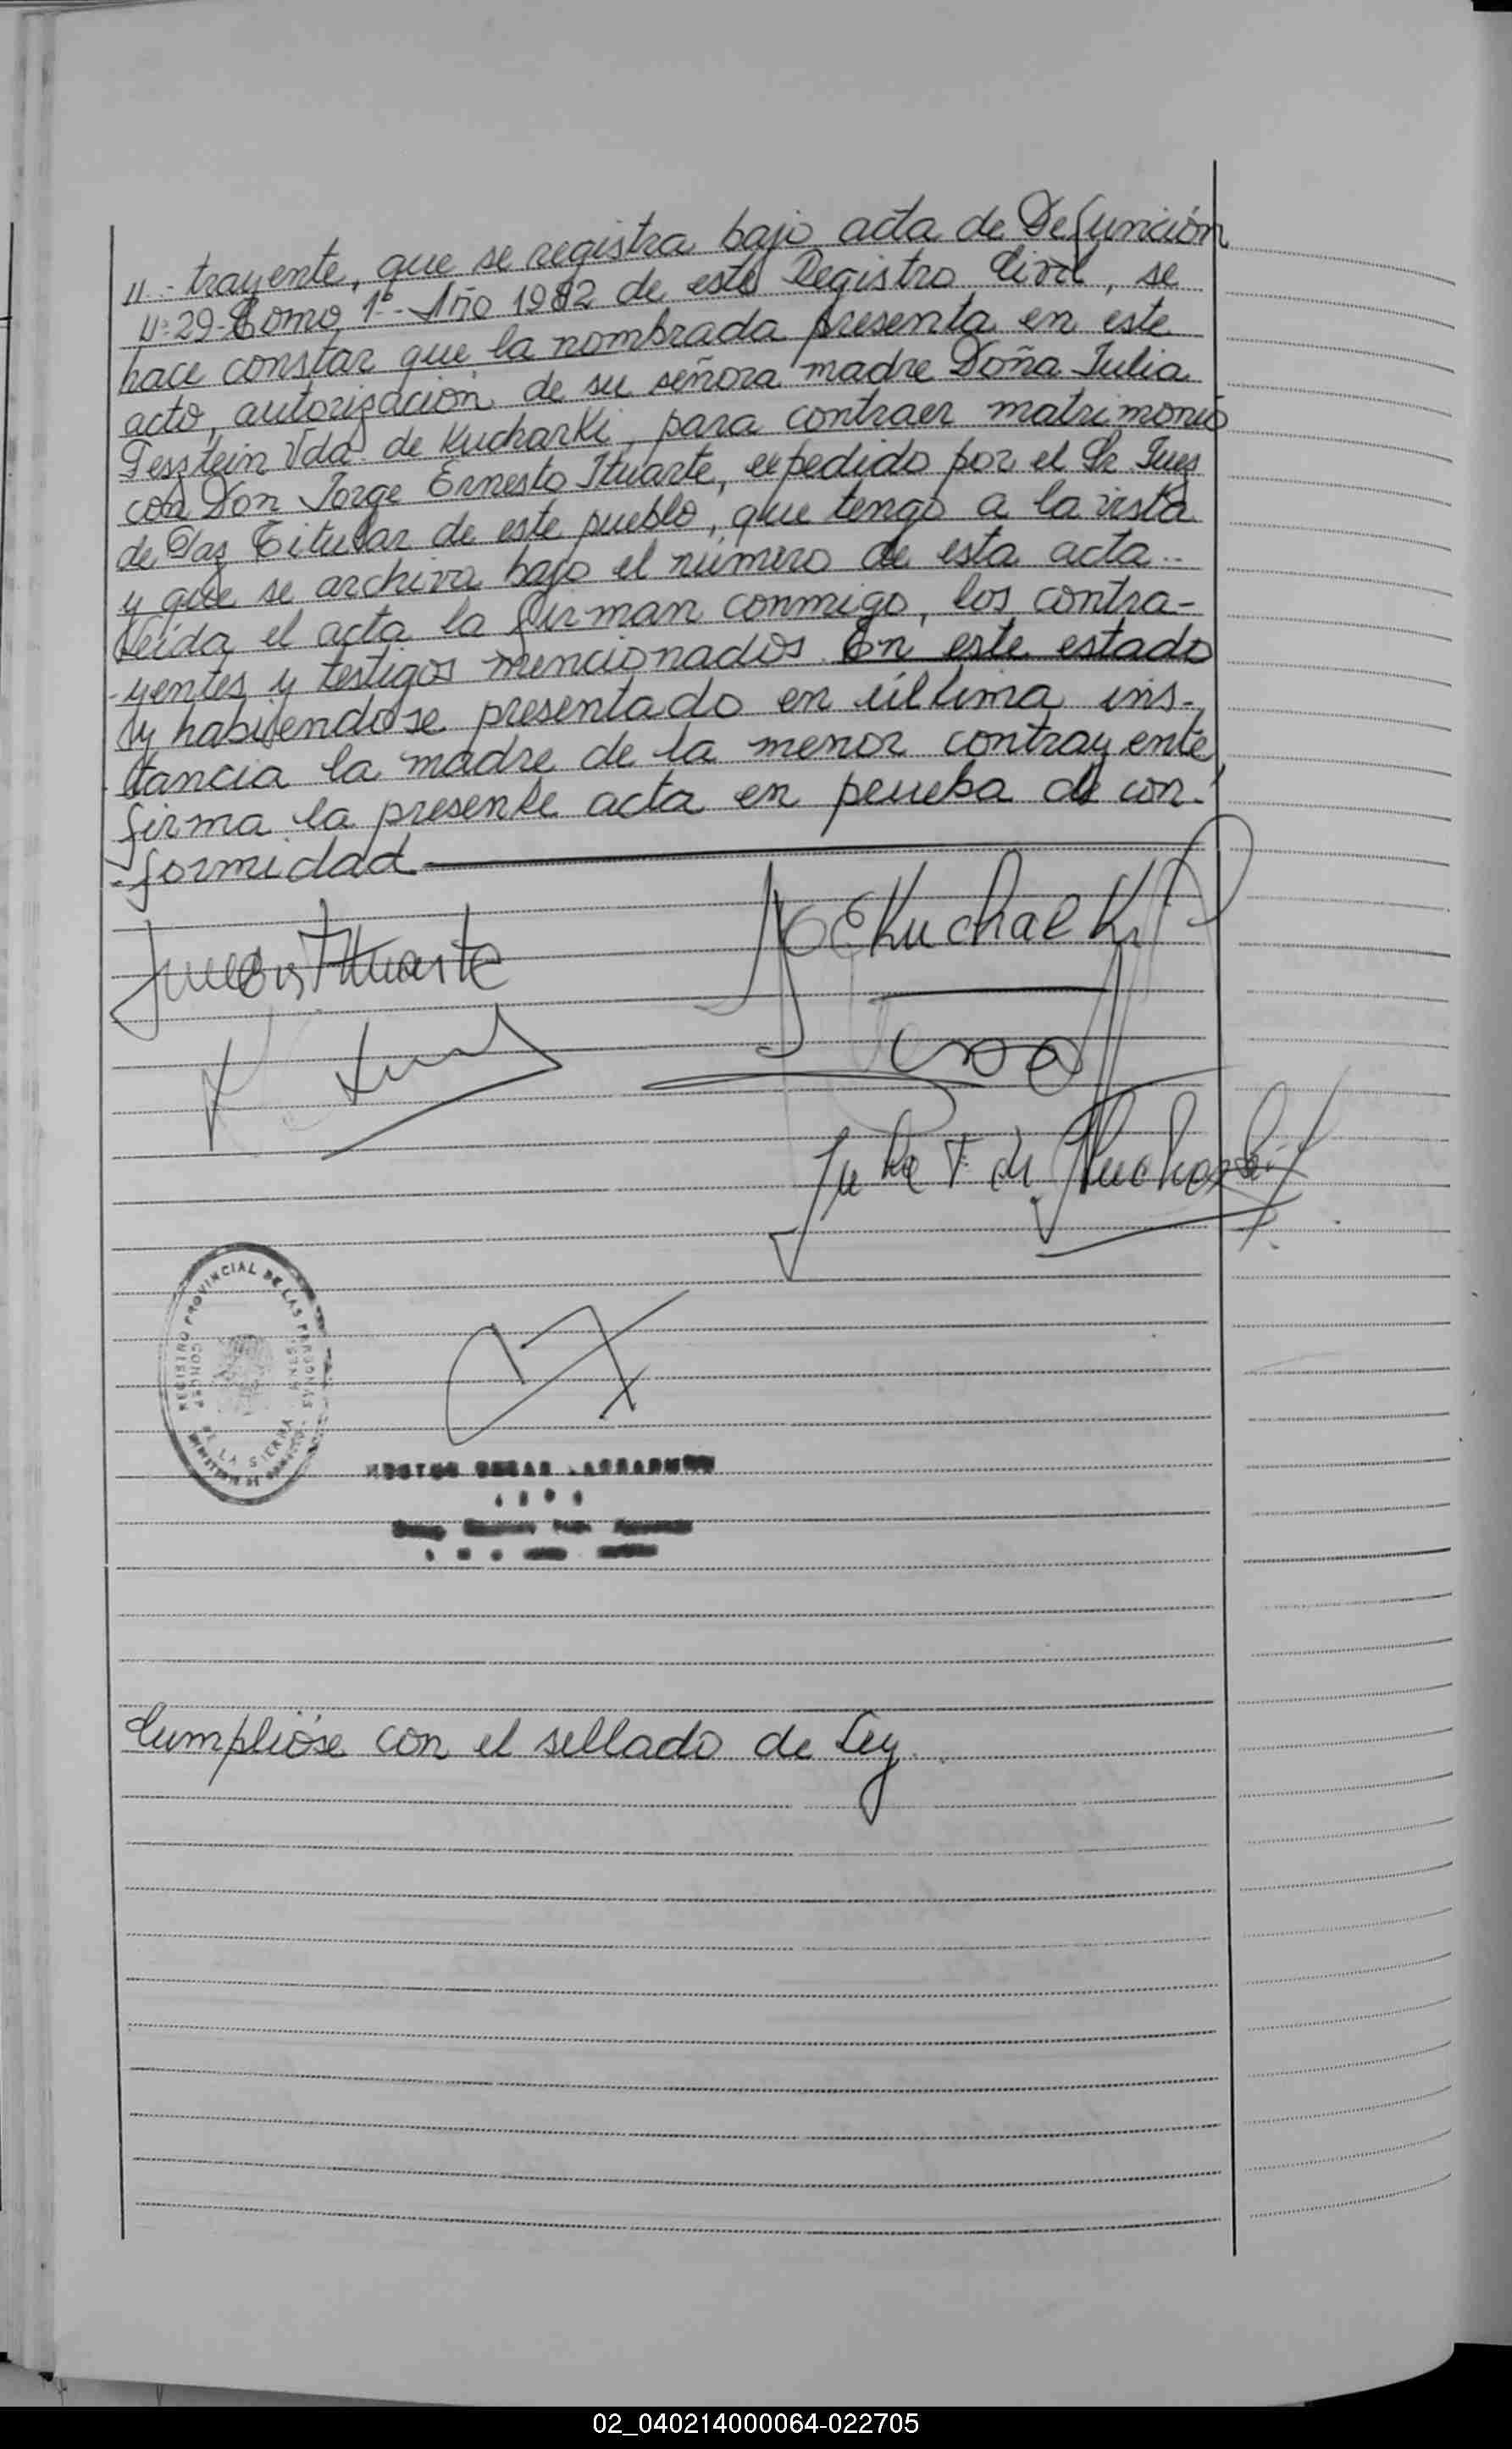 11.- trayente, que se registra bajo acta de Defunción
Nº 29- Tomo 1º- Año 1982 de este Registro Civil, se
hace constar que la nombrada presenta en este
acto, autorización de su señora madre Doña Julia
Tesztein Vda. de Kucharki, para contraer matrimonio
con Don Jorge Ernesto Ituarte, expedido por el Sr Juez
de Paz Titular de este pueblo, que tengo a la vista
y que se archiva bajo el número de esta acta..
Leída el acta la firman conmigo, los contra-
-yentes y testigos mencionados. En este estado
y habiendose presentado en última ins-
tancia la madre de la menor contrayente,
firma la presente acta en prueba de con-
-formidad.
Ituarte
Kucharki
Julia T. de Kucharki
REGISTRO PROVINCIAL DE LAS PERSONAS
DE LA SIERRA
MINISTERIO DE GOBIERNO
Cumplióse con el sellado de Ley..
02_040214000064-022705